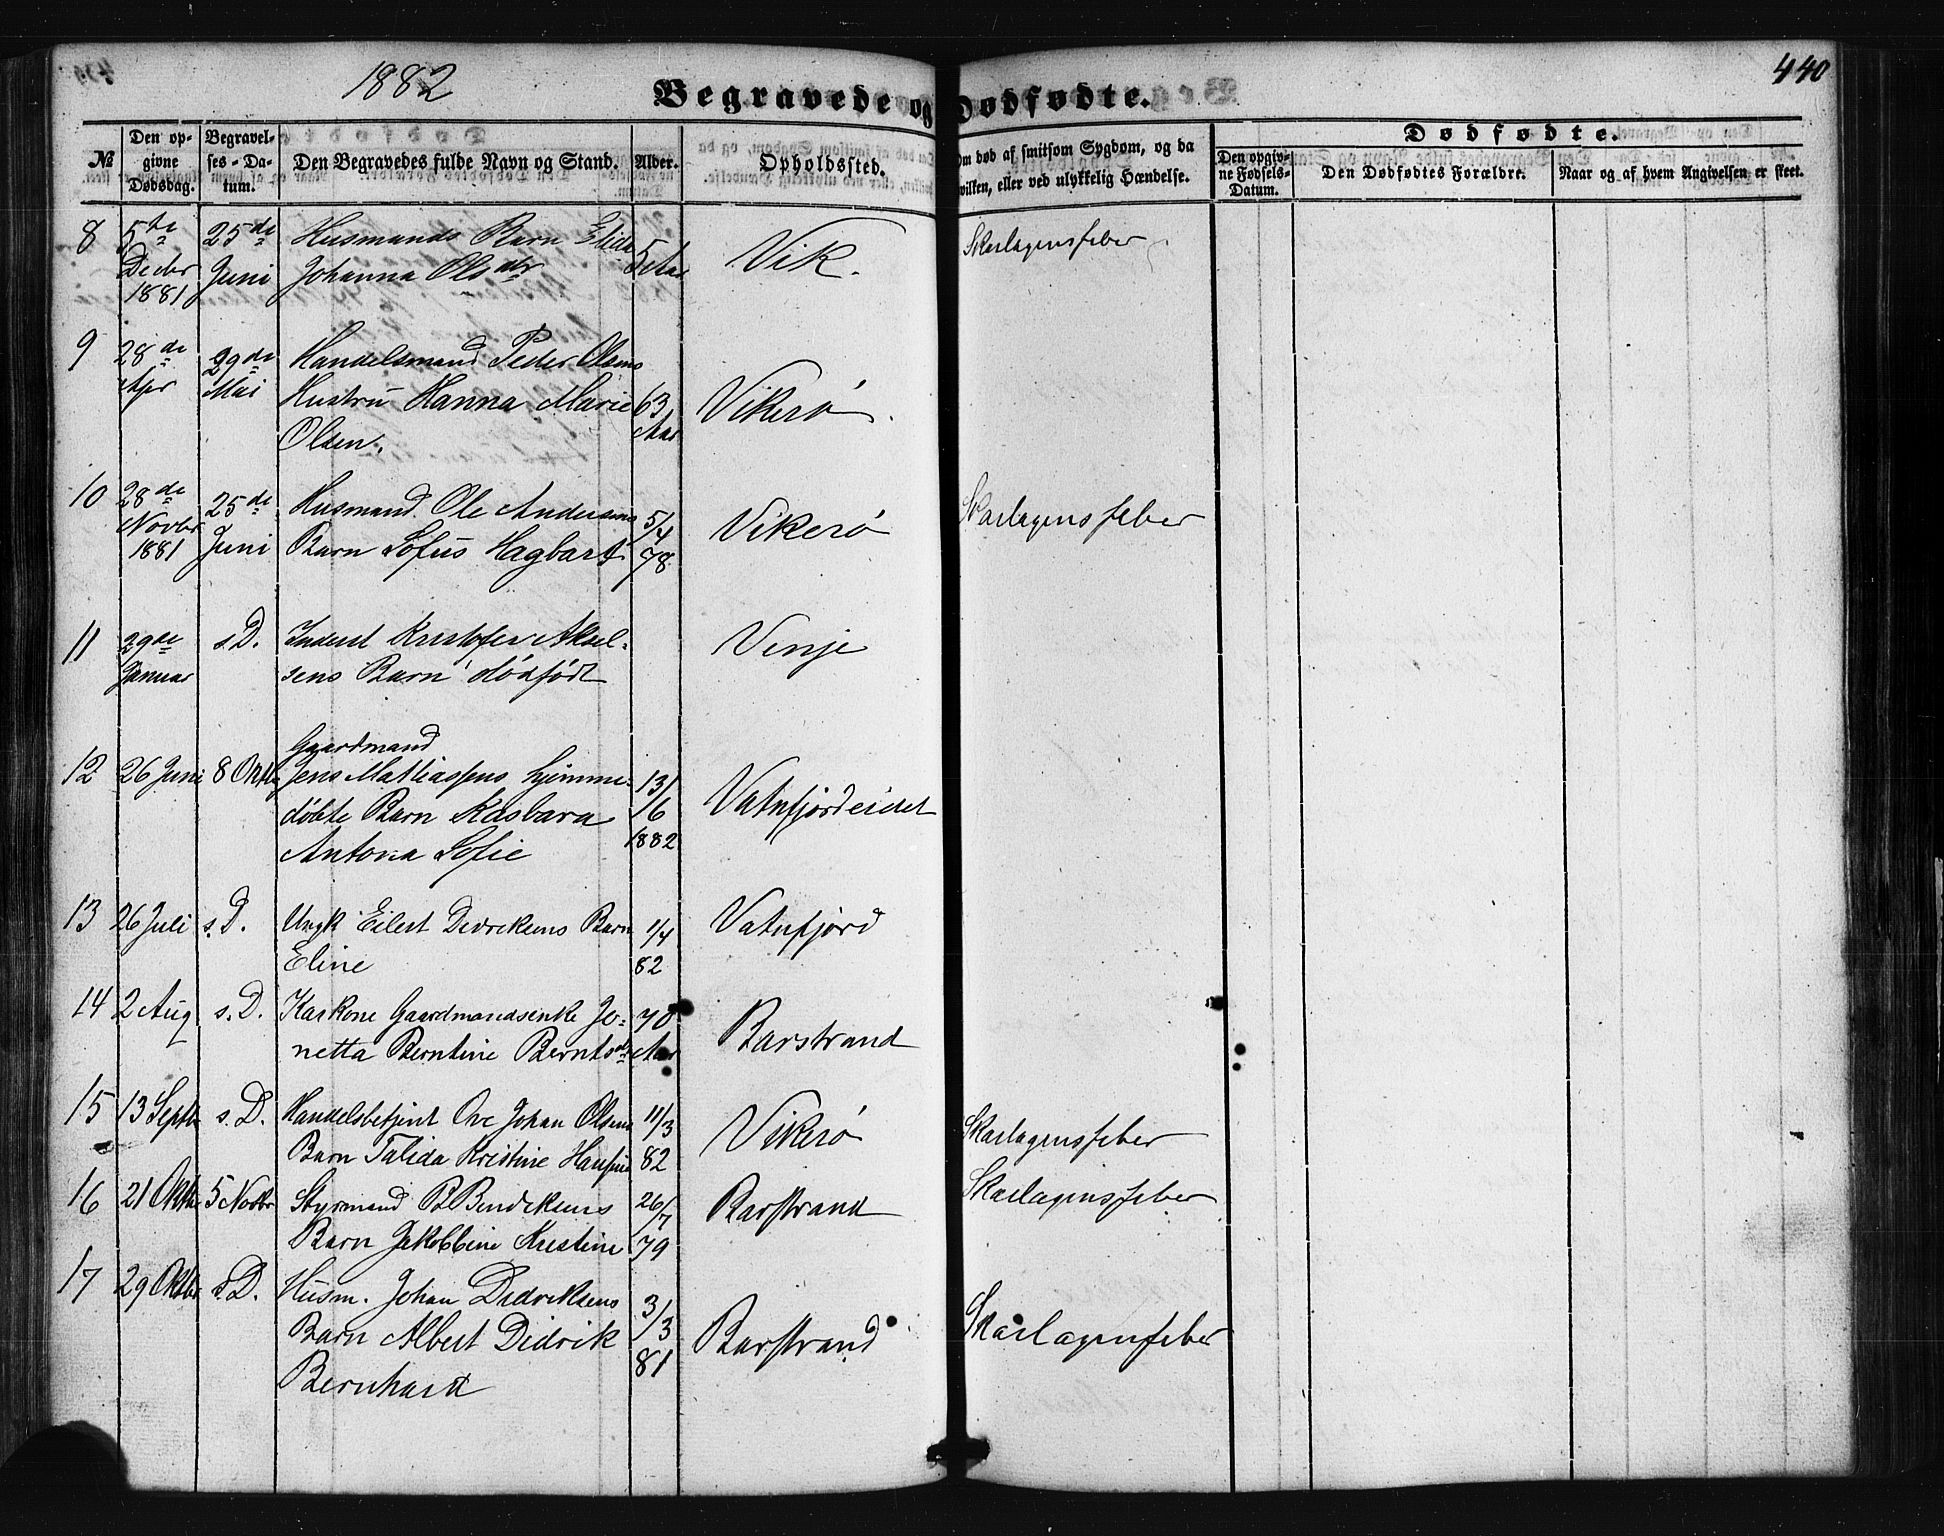 1882
440
Begravede og Dødfødte.
№
Den opgivne Dødsdag.
Begravelses-Datum.
Den Begravedes fulde Navn og Stand.
Alder.
Opholdssted.
Om død af smitsom Sygdom, og da hvilken, eller ved ulykkelig Hændelse.
Dødfødte.
Den opgivne Fødsels-Datum.
Den Dødfødtes Forældre.
Naar og af hvem Angivelsen er skeet.
8 5te Decbr 1881 25de Juni Husmands Barn Elida 5 Aar Vik. Skarlagensfeber
Johanna Olsdtr
9 28de Apr 29de Mai Handelsmand Peder Olsens 63 Aar Vikerø.
Hustru Hanna Marie
Olsen.
10 28de Novbr 1881 25de Juni Husmand Ole Andersens 5/4 78 Vikerø Skarlagensfeber
Barn Sofus Hagbart
11 29de Januar s.D. Inderst Kristofer Aksel- Venje
sens Barn dødfødt
Gaardmand
12 26 Juni 8 Oktb Jens Mathiassens hjemme- 13/6 1882 Vatnfjordeidet
døbte Barn Kasbara
Antona Sofie
13 26 Juli s.D. Ungk Eilert Didriksens Barn 1/4 82 Vatnfjord
Eline
14 2 Aug s.D. Kaarkone Gaardmandsenke Jo- 70 Aar Barstrand
netta Berntine Berntsdr
15 13 Septb s.D. Handelsbetjent Ove Johan Olsens 11/3 82 Vikerø Skarlagensfeber
Barn Talida Kristine Hansine
16 21 Oktbr 5 Novbr Styrmand B Bendiksens 26/7 79 Barstrand Skarlagensfeber
Barn Jakobbine Kristine
17 29 Oktbr s.D. Husm. Johan Didriksens 3/3 81 Barstrand Skarlagensfeber
Barn Albert Didrik
Bernhard